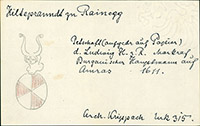 Hiltsprandt zu Rainegg
Petschaft (aufgedr. auf Papier)
d. Ludwig H. z. R. Markgraf.
Burgauischer Hauptmann auf
Amras 1611.
Arch. Krippach Urk 315.